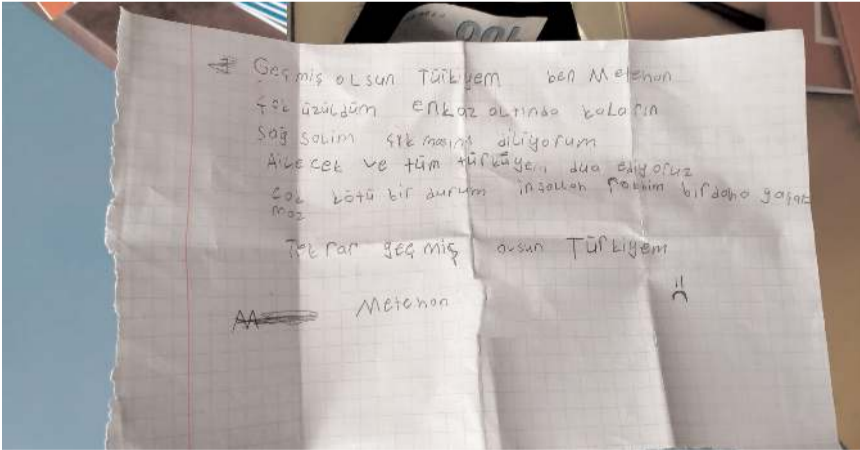 Geçmiş olsun Türkiyem ben Metehan
çok üzüldüm enkaz altında kaların
Sağ salim çıkmasını diliyorum
Ailecek ve tüm türküyem dua ediyoruz
çok kötü bir durum inşallah rabbim birdaha yaşat
maz
Tekrar geçmiş olsun Türkiyem
Metehan